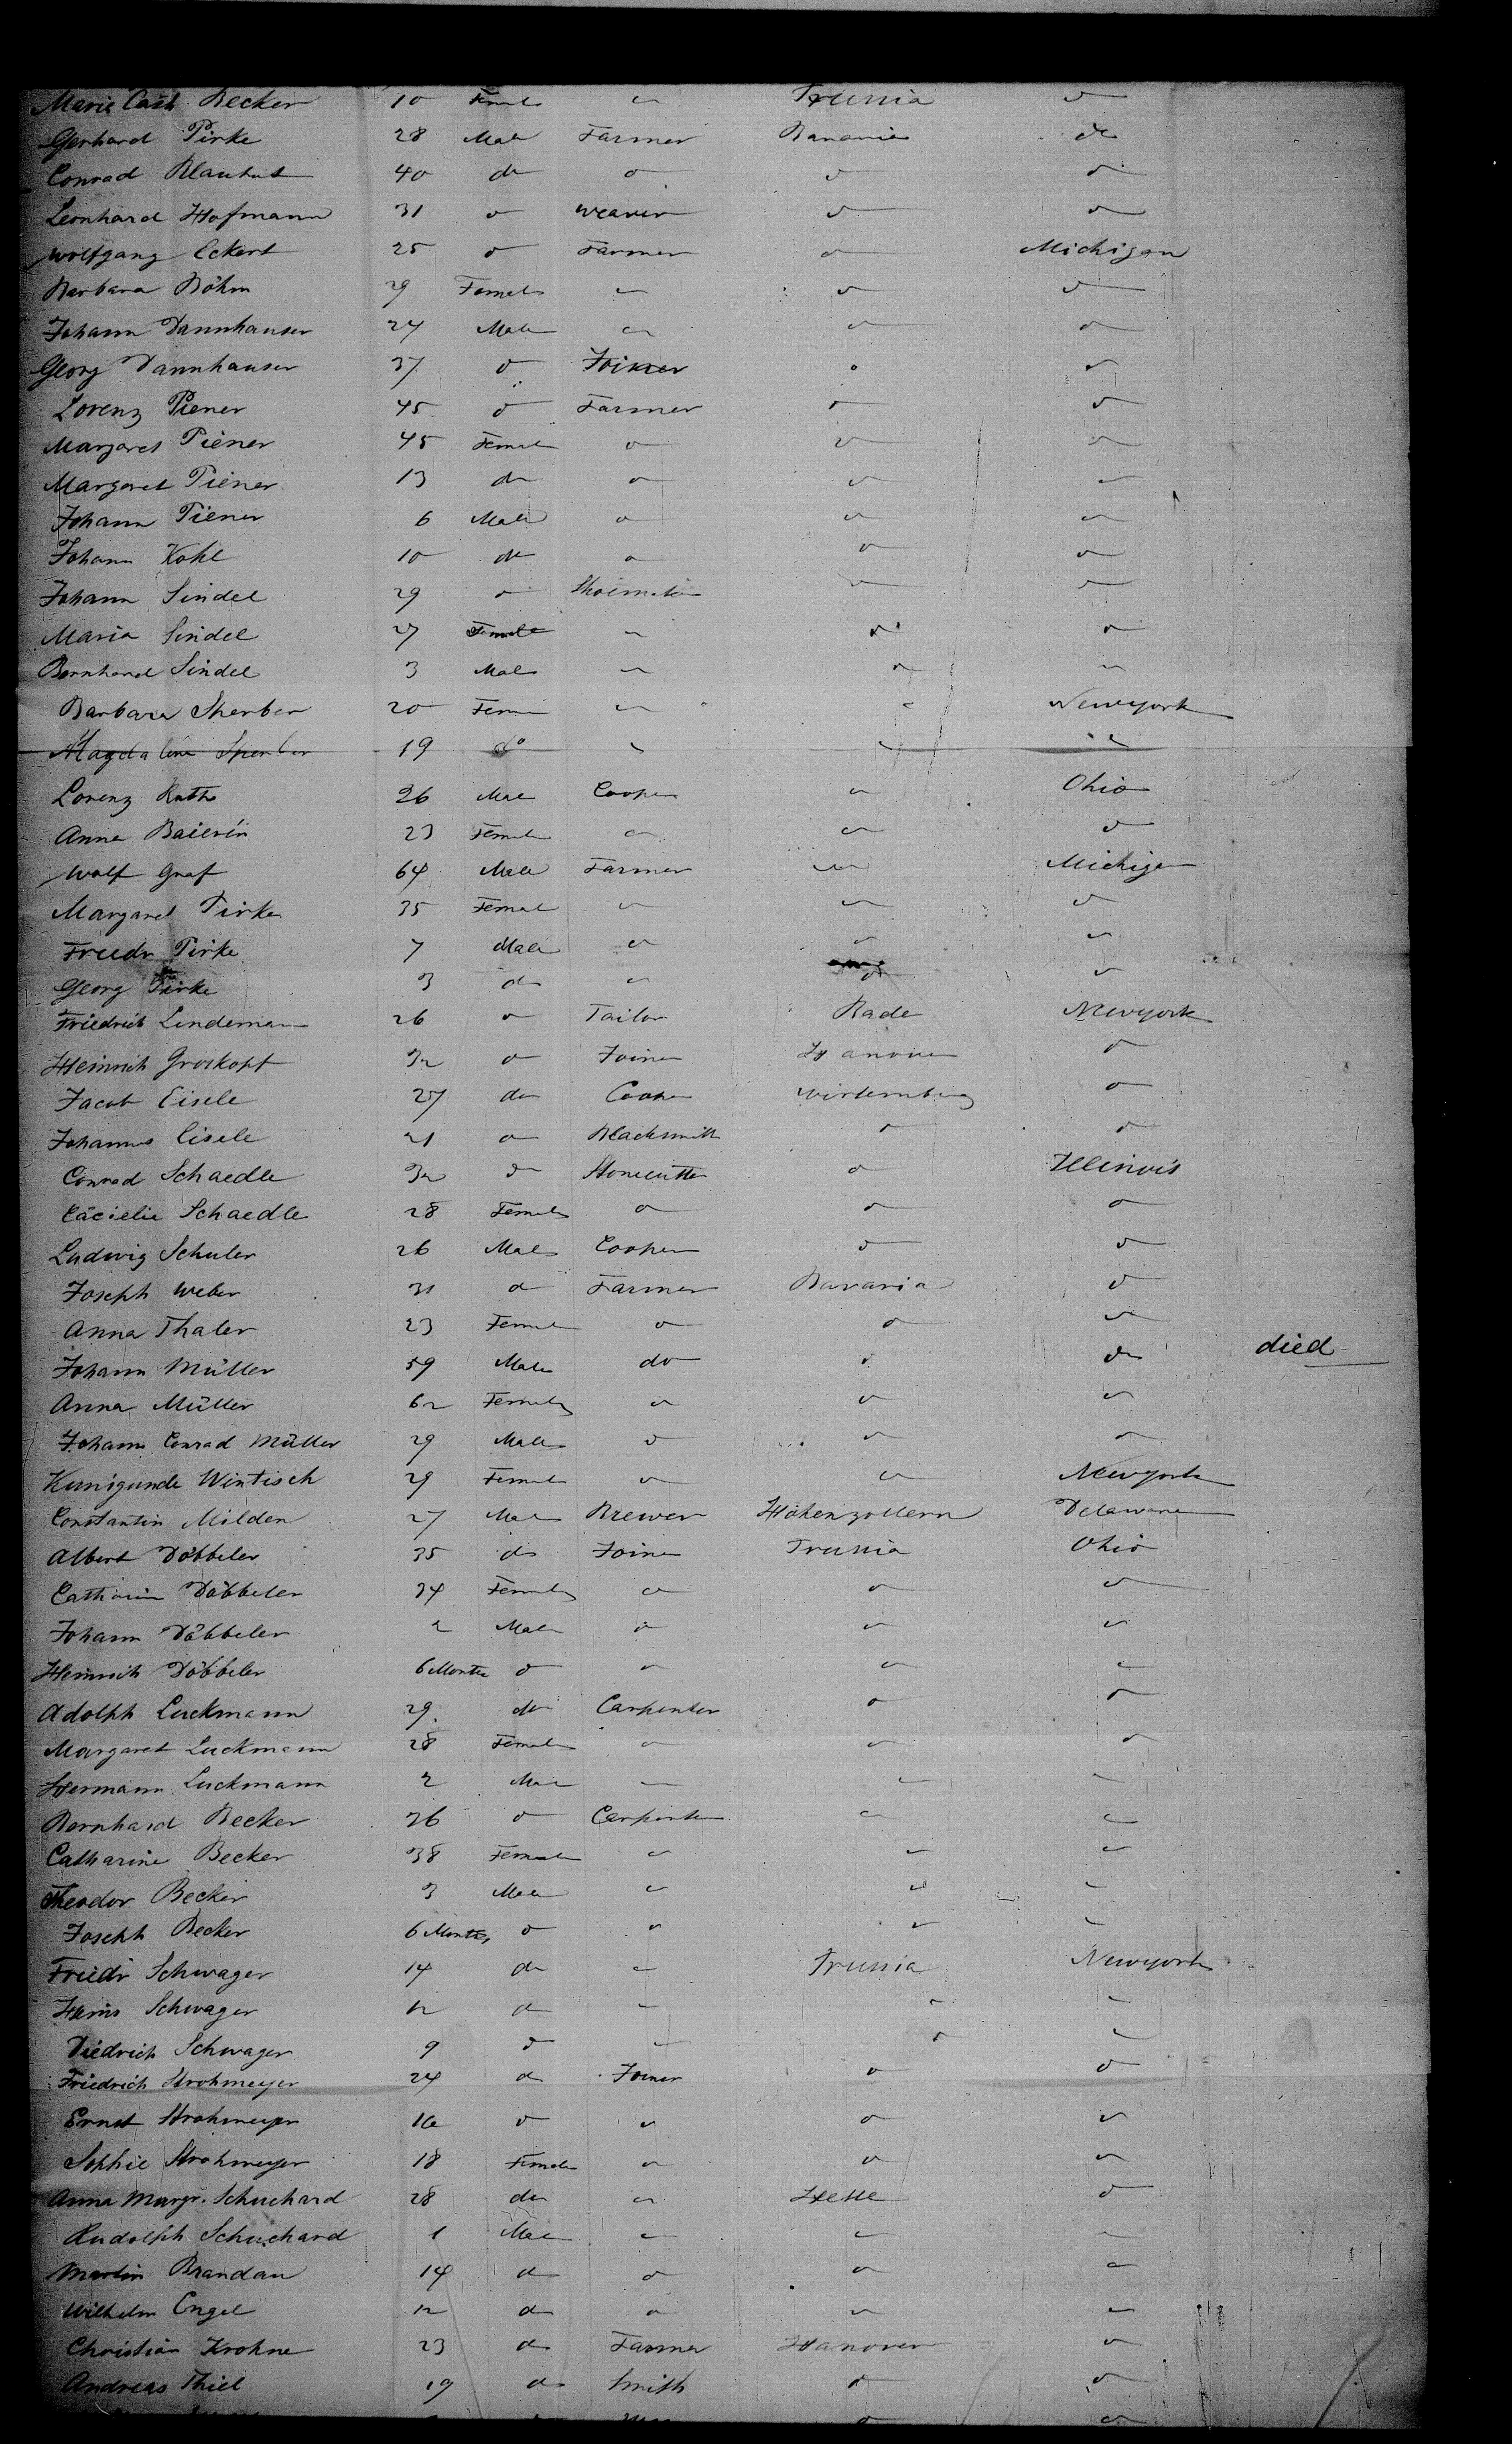 Marie Cath. Becker 10 Female " Prussia "
Gerhard Pirke 28 Male Farmer Bavaria do
Conrad Blauhut 40 do " " "
Leonhard Hofmann 31 " weaver " "
Wolfgang Eckert 25 " Farmer " Michigan
Barbara Böhm 29 Female " " "
Johann Dannhauser 24 Male " " "
Georg Dannhauser 37 " Joiner " "
Lorenz Piener 45 " Farmer " "
Margaret Piener 45 Female " " "
Margaret Piener 13 do " " "
Johann Piener 6 Male " " "
Johann Kohl 10 do " " "
Johann Sindel 29 " Shoemaker " "
Maria Sindel 27 Female " " "
Bernhard Sindel 3 Male " " "
Barbara Sherber 20 Female " " Newyork
Magdalena Sperber 19 do " " "
Lorenz Ruth 26 Male Cooper " Ohio
Anna Baierin 23 Female " " "
Wolf Graf 64 Male Farmer " Michigan
Margaret Pirke 35 Female " " "
Friedr Pirke 7 Male " " "
Georg Pirke 3 do " " "
Friedrich Lindemann 26 " Tailor Bade Newyork
Heinrich Groskopf 32 " Joiner Hanover "
Jacob Eisele 27 do Cooper Wirtemberg "
Johannes Eisele 21 " Blacksmith " "
Conrad Schaedle 32 " Stonecutter " Illinois
Cäcielie Schaedle 28 Female " " "
Ludwig Schuler 26 Male Cooper " "
Joseph Weber 31 " Farmer Bavaria "
Anna Thaler 23 Female " " "
Johann Müller 59 Male do " do died
Anna Müller 62 Female " " "
Johann Conrad Müller 29 Male " " "
Kunigunde Wintisch 29 Female " " Newyork
Constantin Milden 27 Male Brewer Hohenzollern Delaware
Albert Döbbeler 35 do Joiner Prussia Ohio
Catharin Döbbeler 34 Female " " "
Johann Döbbeler 2 Male " " "
Heinrich Döbbeler 6 Months " " " "
Adolph Luckmann 29 do Carpenter " "
Margaret Luckmann 28 Female " " "
Hermann Luckmann 2 Male " " "
Bernhard Becker 36 " Carpenter " "
Catharine Becker 38 Female " " "
Theodor Becker 3 Male " " "
Joseph Becker 6 Months " " " "
Friedr Schwager 14 do " Prussia Newyork
Schwager 12 do " " "
Diedrich Schwager 9 " " " "
Friedrich Strohmeyer 24 do Joiner " "
Ernst Strohmeyer 16 " " " "
Sophie Strohmeyer 18 Female " " "
Anna Margr. Schuchard 28 do " Hesse "
Rudolph Schuchard 1 Male " " "
Martin Brandau 14 do " " "
Wilhelm Engel 12 do " " "
Christian Krohne 23 do Farmer Hanover "
Andreas Thiel 19 do Smith " "